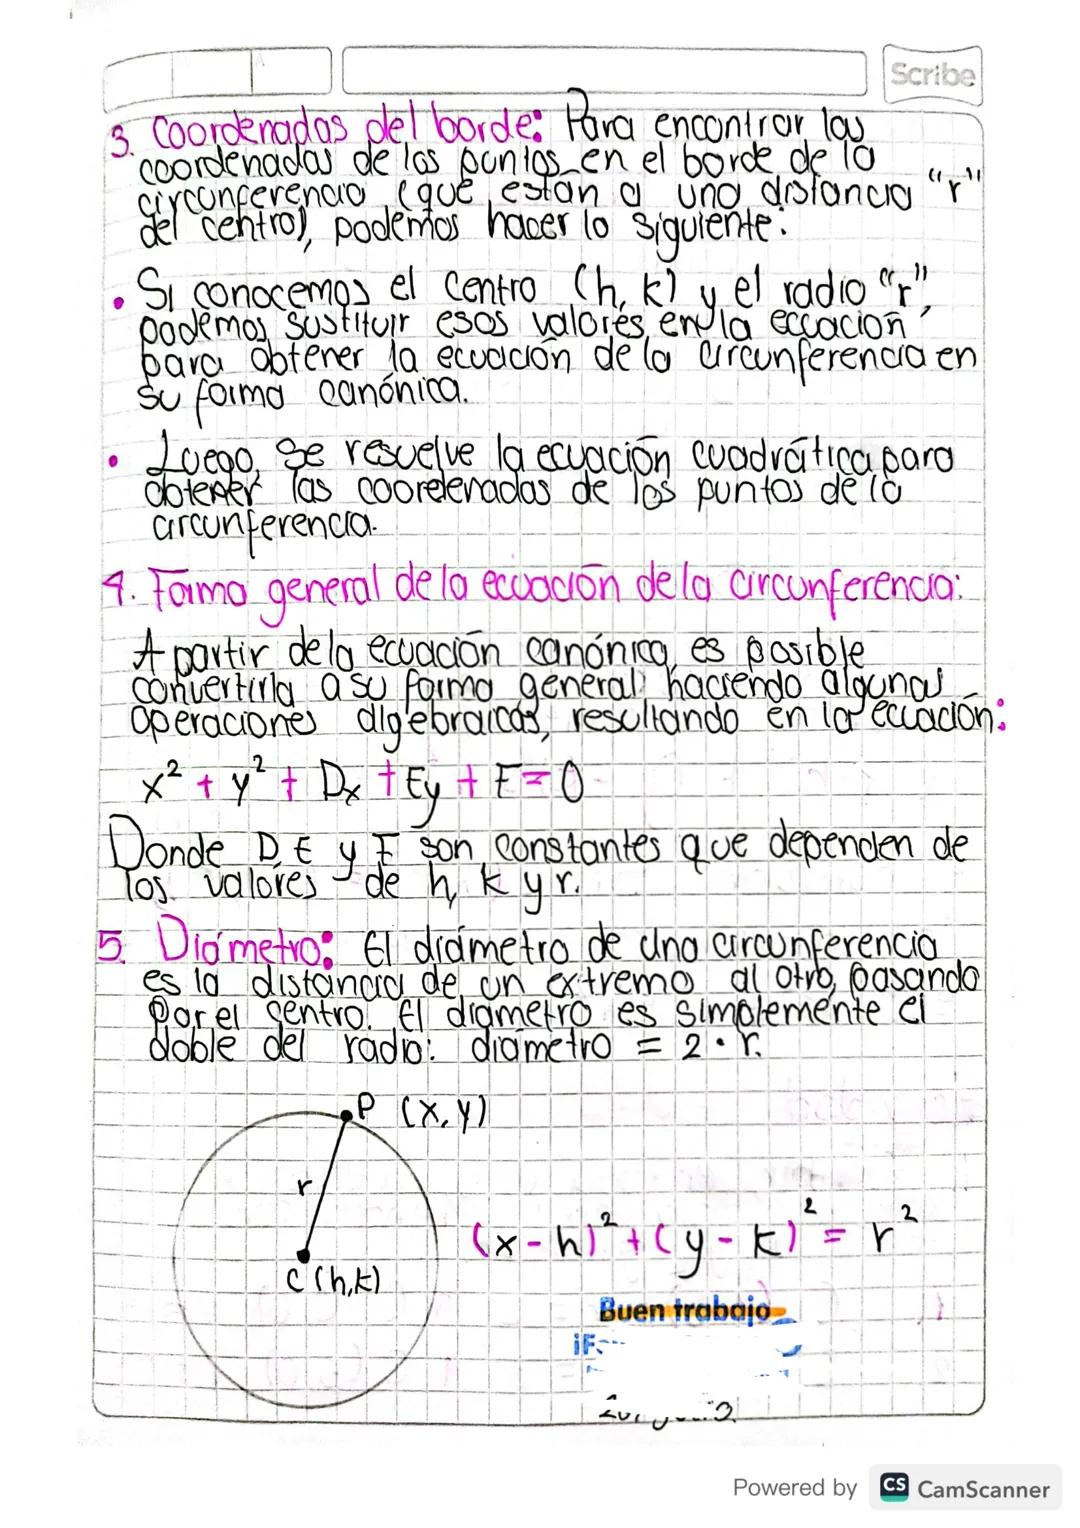 Scribe
3. Coordenadas del borde: Para encontrar las
coordenadas de los puntos en el borde de la
circunferencia (que están a una distancia "r"
del centro), podemos hacer lo siguiente:
• Si conocemos el centro (h, k) y el radio "r",
podemos sustituir esos valores en la eccación
para obtener la ecuación de la circunferencia en
su forma canónica.
• Luego, se resuelve la ecuación cuadrática para
obtener las coordenadas de los puntos de la
circunferencia.
4. Forma general de la ecuación de la circunferencia:
A partir de la ecuación canónica, es posible
convertirla a su forma general haciendo algunas
operaciones algebraicas, resultando en la ecuación:
x² + y² + Dx + Ey + F = 0
Donde D, E y F son constantes que dependen de
los valores de h, k y r.
5. Diámetro: El diámetro de una circunferencia
es la distancia de un extremo al otro, pasando
por el centro. El diámetro es simplemente el
doble del radio: diámetro = 2 • r.
P (x, y)
r
C (h, k)
(x - h)² + (y - k)² = r²
Buen trabajo
Powered by CS CamScanner